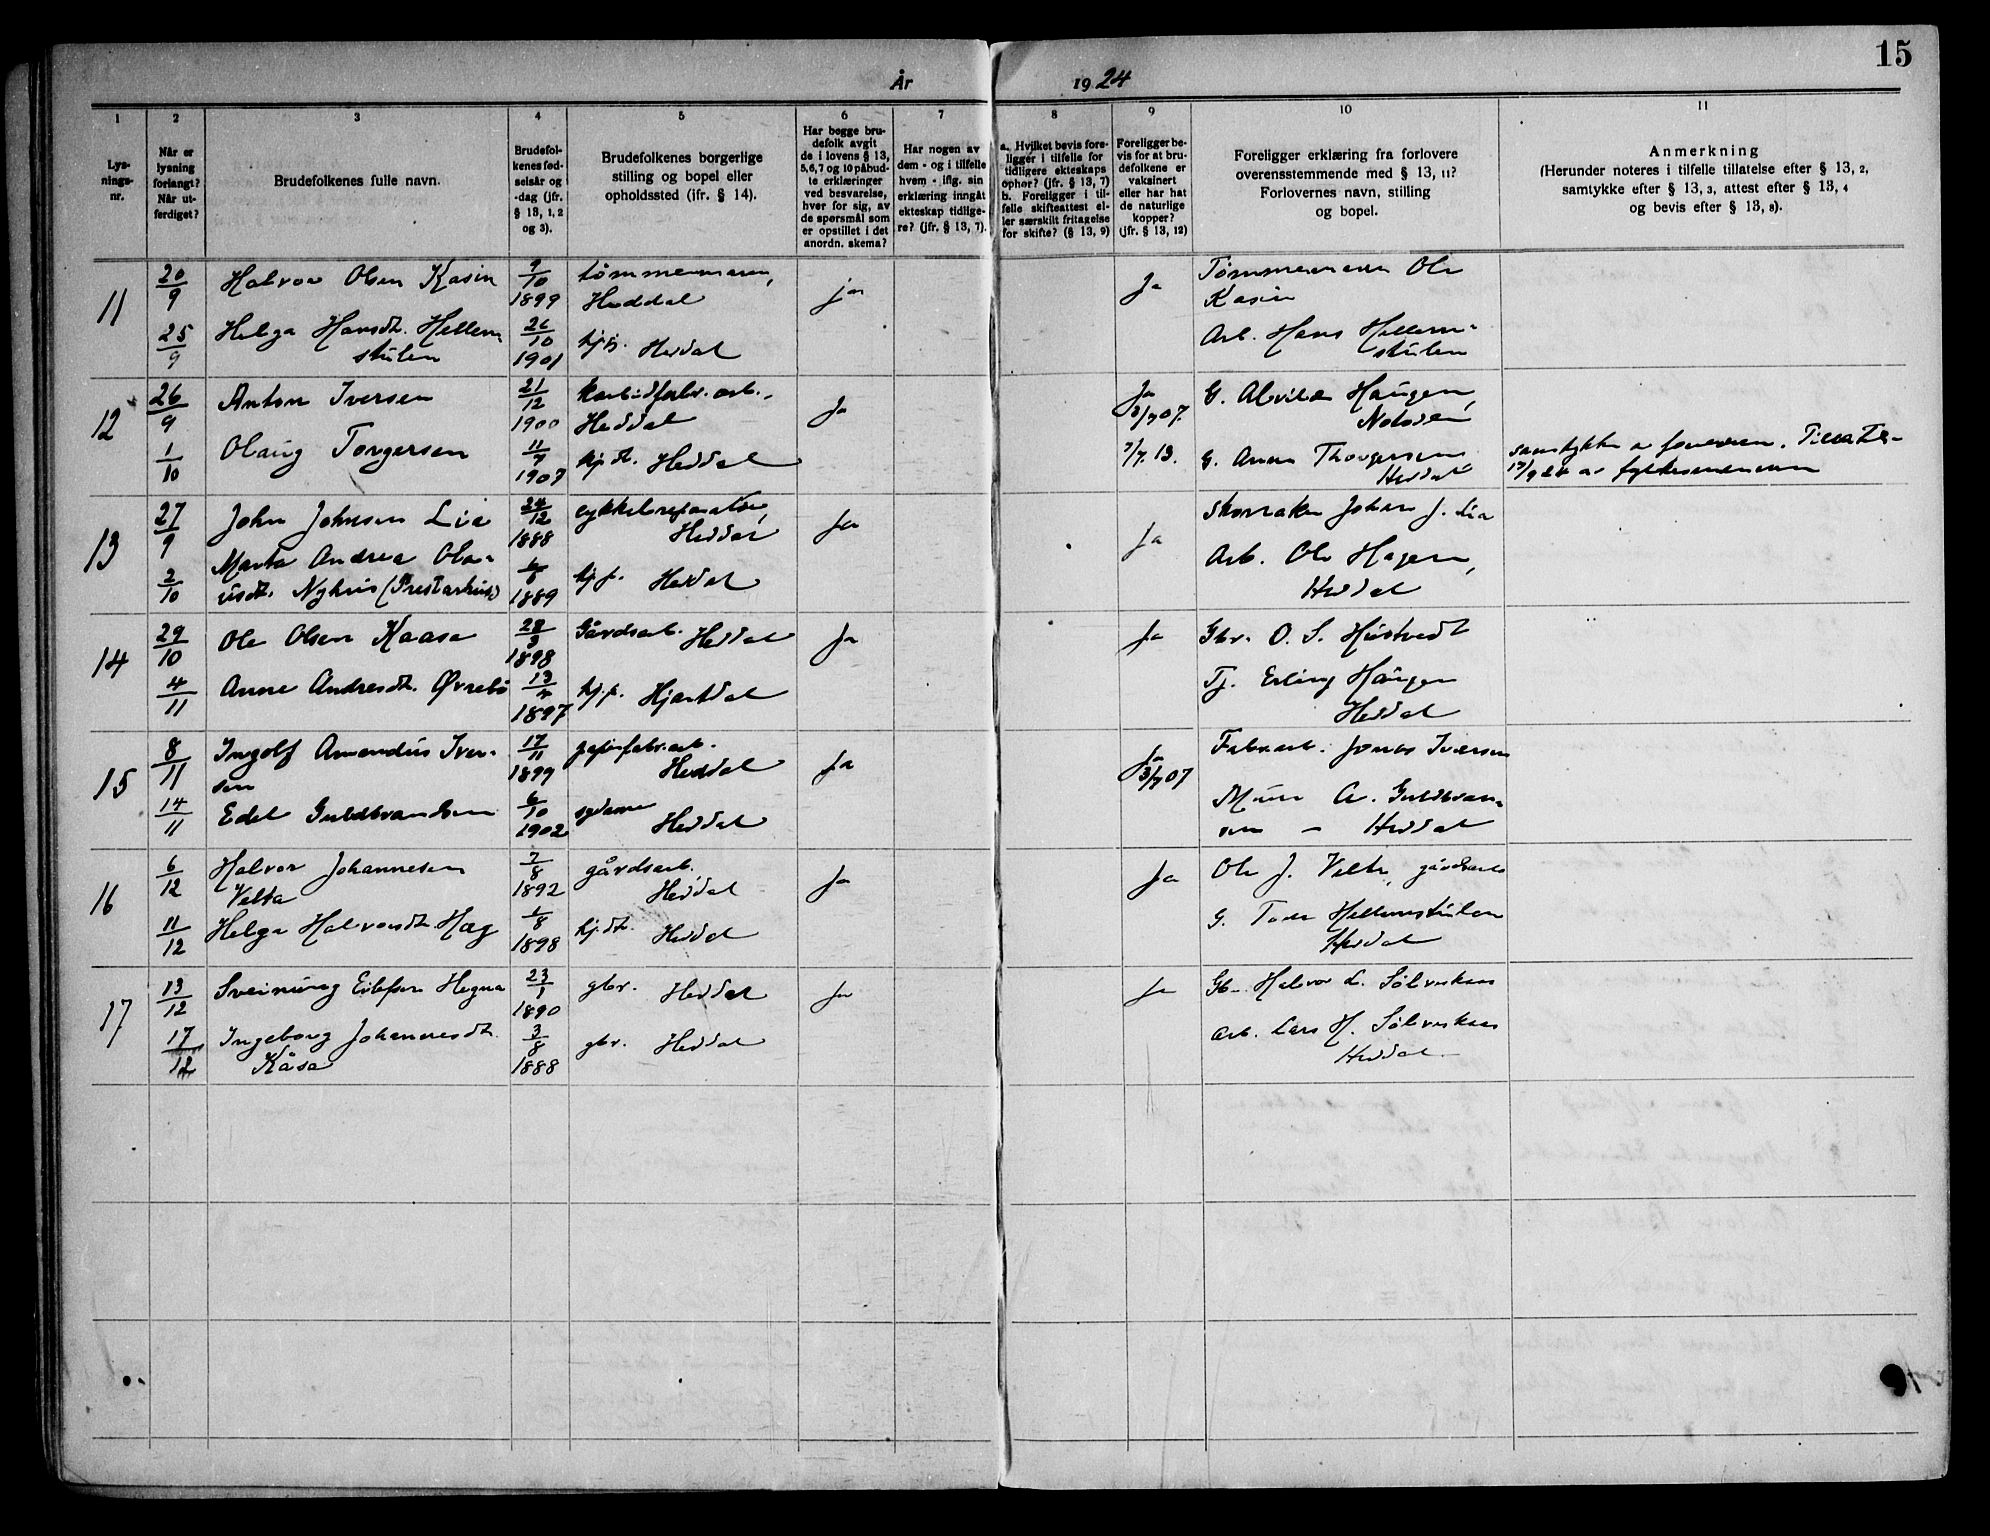 År 1924
15
1
2
3
4
5
6
7
8
9
10
11
Lys-
nings-
nr.
Når er
lysning
forlangt?
Når ut-
ferdiget?
Brudefolkenes fulle navn.
Brudefol-
kenes fød-
selsår og
-dag (jfr.
§ 13, 1, 2
og 3).
Brudefolkenes borgerlige
stilling og bopel eller
opholdssted (jfr. § 14).
Har begge bru-
defolk avgit
de i lovens § 13,
5,6,7 og 10 påbud-
te erklæringer
ved besvarelse,
hver for sig, av
de spørsmål som
er opstillet i det
anordn. skema?
Har nogen av
dem - og i tilfelle
hvem - iflg. sin
erklæring inngåt
ekteskap tidlige-
re? (jfr. § 13, 7).
a. Hvilket bevis fore-
ligger i tilfelle for
tidligere ekteskaps
ophør? (jfr. § 13, 7)
b. Foreligger i til-
felle skifteattest el-
ler særskilt fritagelse
for skifte? (§ 13, 9)
Foreligger be-
vis for at bru-
defolkene er
vaksinert
eller har hat
de naturlige
kopper?
(jfr. § 13, 12)
Foreligger erklæring fra forlovere
overensstemmende med § 13, 11?
Forlovernes navn, stilling
og bopel.
Anmerkning
(Herunder noteres i tilfelle tillatelse efter § 13, 2,
samtykke efter § 13, 3, attest efter § 13, 4
og bevis efter § 13, 8).
11
20/9
25/9
Halvor Olsen Kasin
Helga Hansdt. Hellem-
stulen
9/10
1899
26/10
1901
tømmermann,
Heddal
hj.pj. Heddal
ja
Ja
Tømmermann Ole
Kasin
Arb. Hans Hellem-
stulen
12
26/9
1/10
Anton Iversen
Olaug Torgersen
21/12
1900
11/7
1907
karbidfabr. arb.,
Heddal
hj.dt. Heddal
Ja
Ja
3/7 07.
7/7. 13.
G. Alvilda Haugen,
Notodden
G. Anna Thorgersen
Heddal
samtykke av foreldrene.
17/9 24 av fylkesmannen
13
27/9
2/10
John Johnsen Lia
Marta Andrea Ola-
usdt. Nyhus (Prestarhus)
24/12
1888
6/6
1889
cykkelreparatør,
Heddal
hj.p. Heddal
Ja
Ja
Skomaker Johan J. Lia
Arb. Ole Hagen,
Heddal
14
29/10
4/11
Ole Olsen Kaasa
Anne Andresdt. Øvrebø
28/3
1898
13/4
1897
Gårdsarb. Heddal
hj.p. Hjartdal
Ja
Ja
Gbr. O. S. Hustvedt
Tj. Erling Haugen
Heddal
15
8/11
14/11
Ingolf Amandus Iver-
sen
Edel Guldbrandsen
17/11
1899
6/10
1902
papirfabr. arb.
Heddal
sydame
Heddal
Ja
Ja
3/7 07
Fabr.arb. Jonas Iversen
Murer A. Guldbran-
sen - Heddal
16
6/12
11/12
Halvor Johannesen
Velta
Helga Halvorsdt. Hæg
7/8
1892
1/8
1898
gårdsarb.
Heddal
hj.dt. Heddal
Ja
Ja
Ole J. Velta, gårdsarb.
G. Tone Hellemstulen
Heddal
17
13/12
17/12
Sveinung Eilefsen Hegna
Ingeborg Johannesdt.
Kåsa
23/1
1890
3/8
1888
gbr. Heddal
gbr. Heddal
Ja
Ja
Gbr. Halvor L. Sølveskaas
Arb. Lars H. Sølveskaas
Heddal